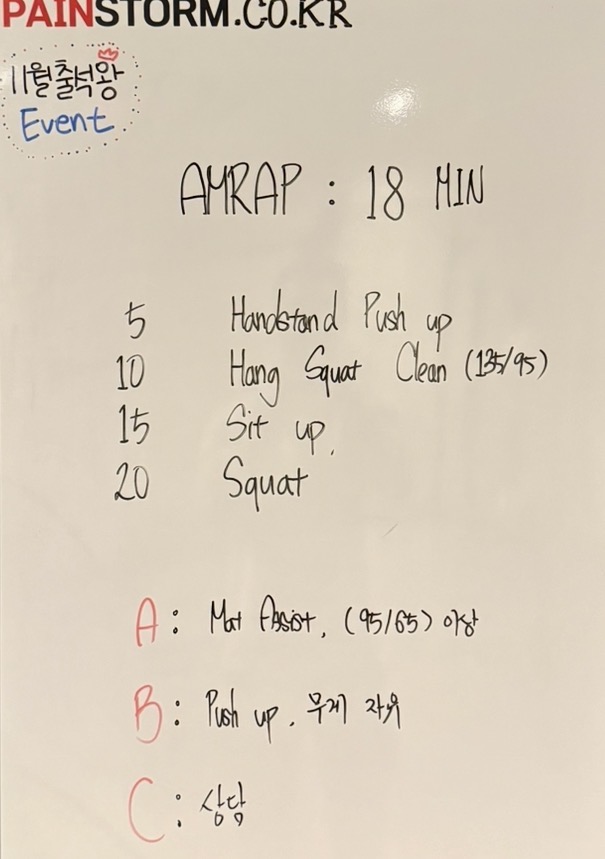 PAINSTORM.CO.KR
11월출석왕
Event
AMRAP : 18 MIN
5 Handstand Push up
10 Hang Squat Clean (135/95)
15 Sit up.
20 Squat
A : Mat Assist, (95/65) 이상
B : Push up. 무게 자유
C : 상담